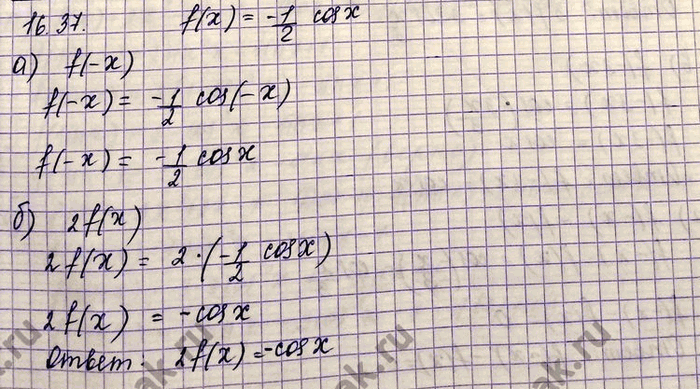 16.37. f(x) = -1/2 cosx
а) f(-x)
f(-x) = -1/2 cos(-x)
f(-x) = -1/2 cosx
б) 2f(x)
2f(x) = 2·(-1/2 cosx)
2f(x) = -cosx
Ответ: 2f(x) = -cosx